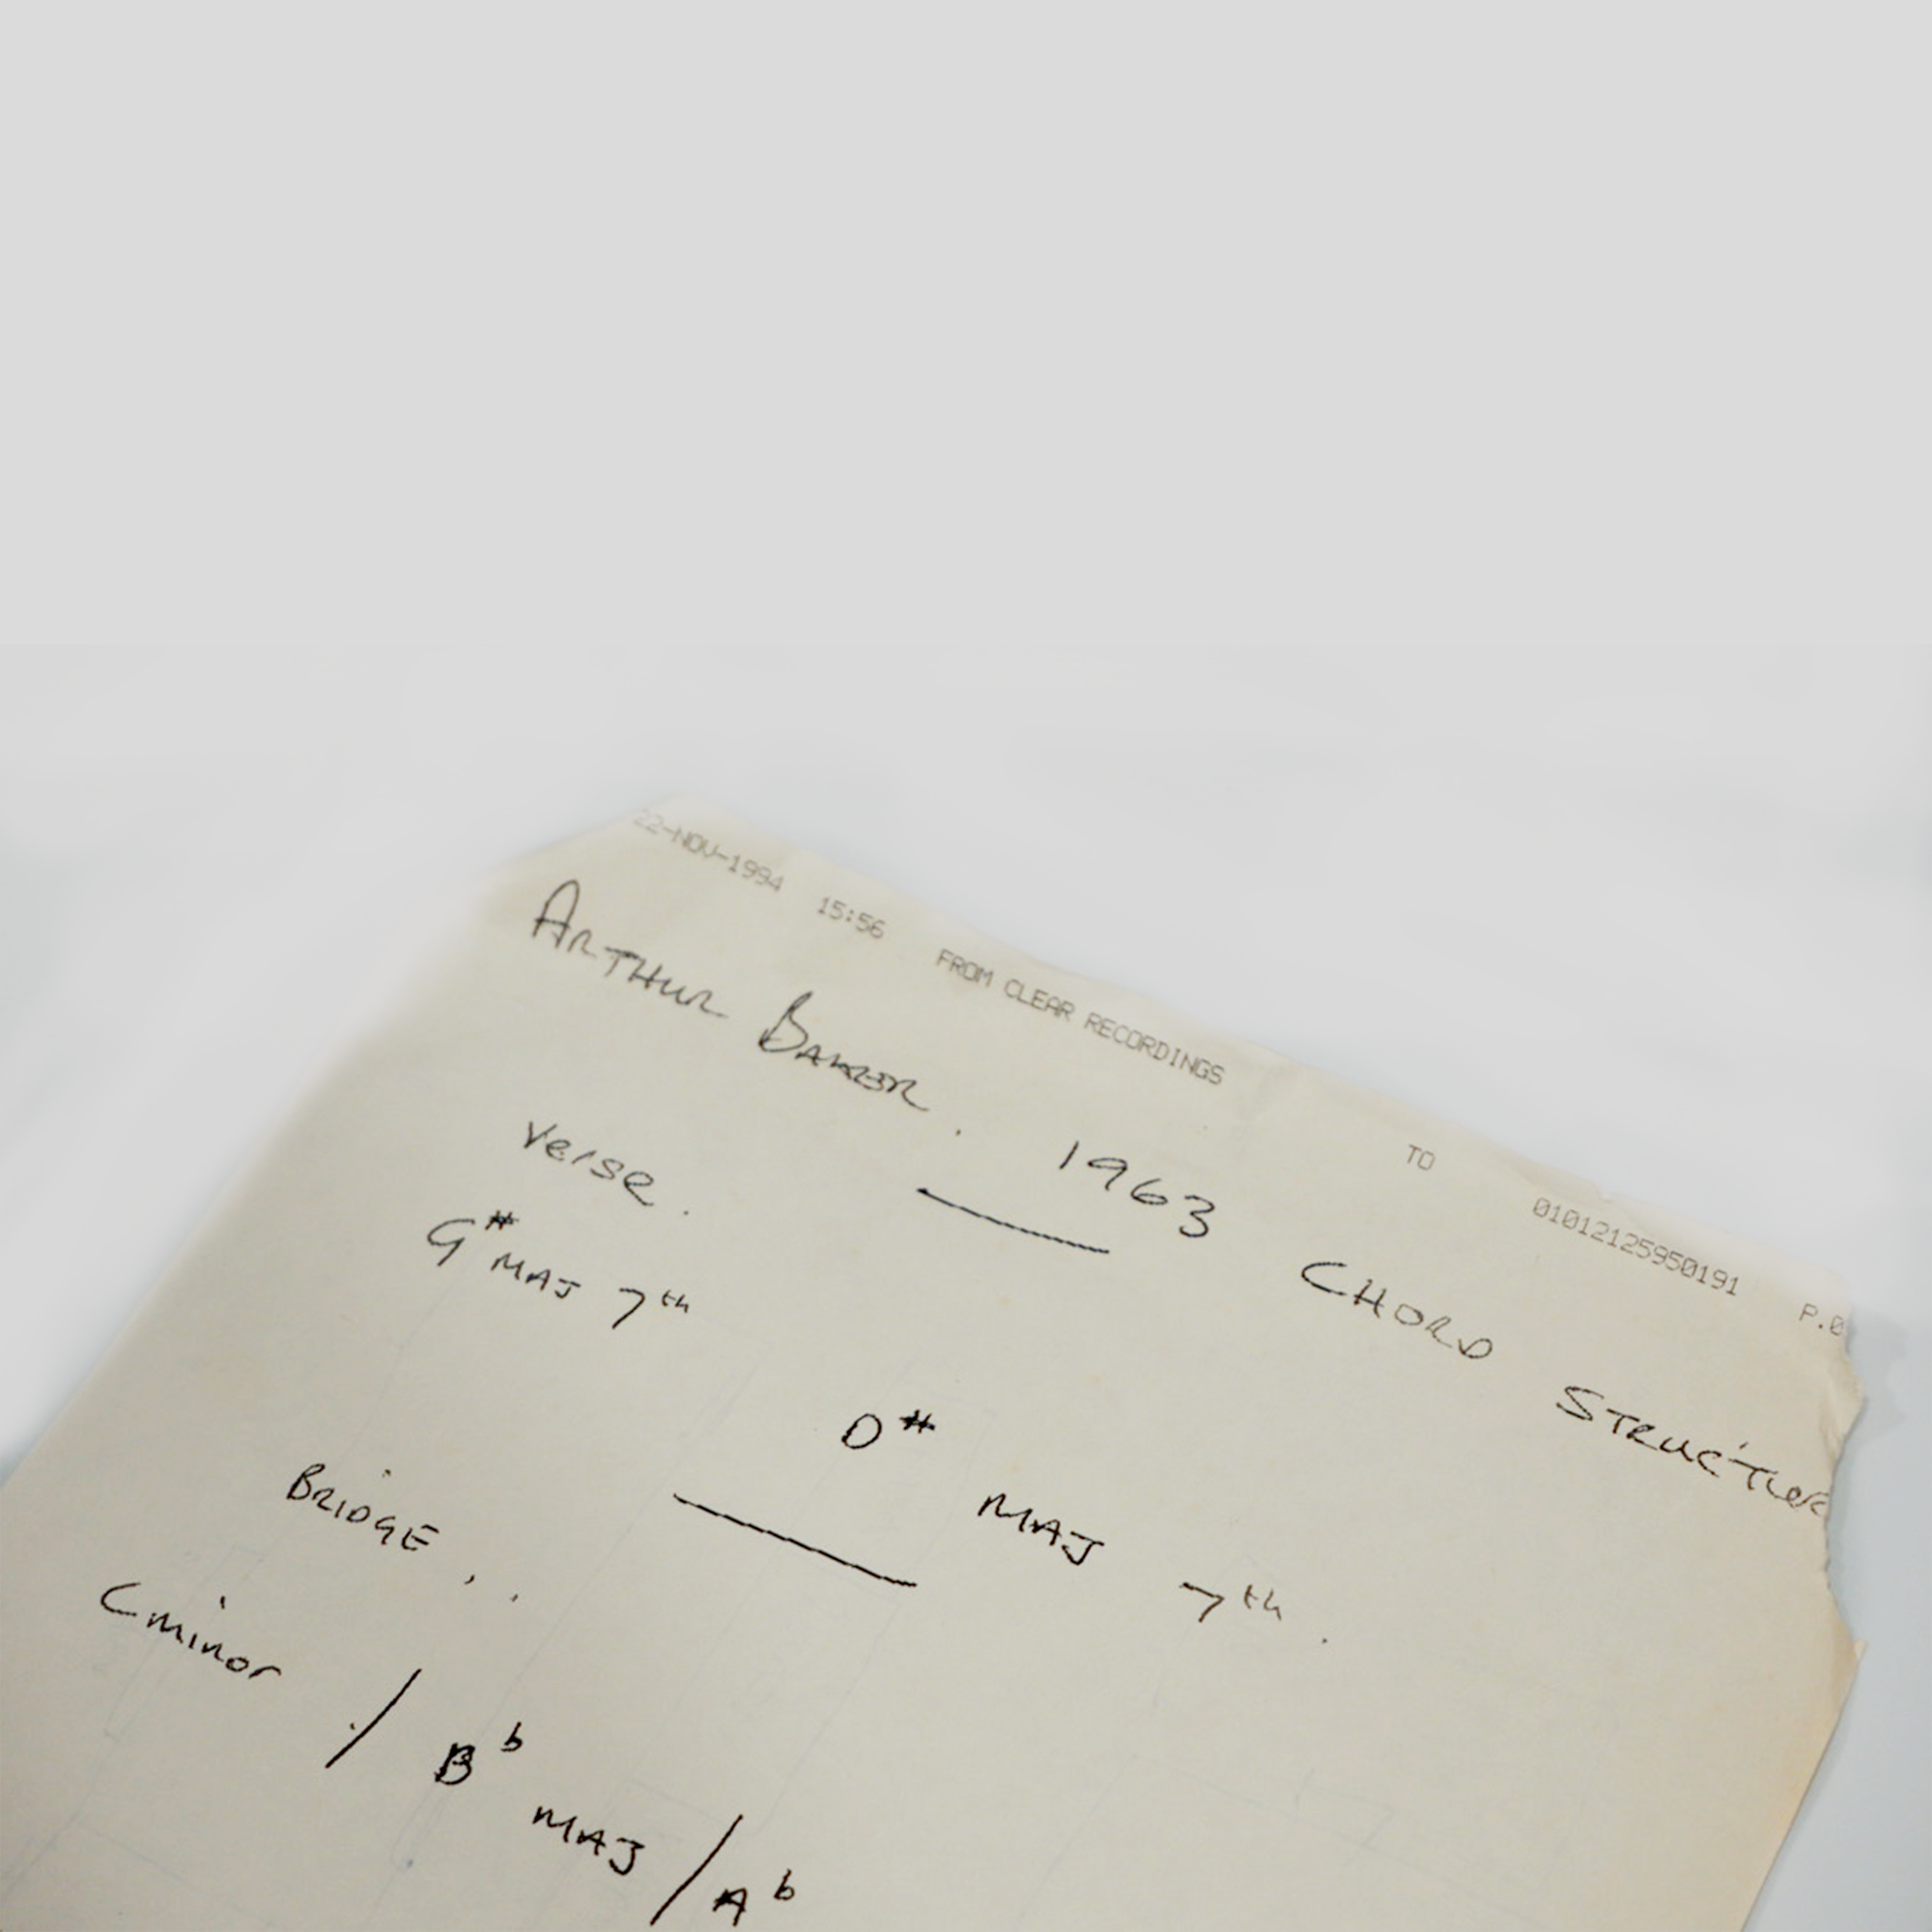 22-NOV-1994 15:56 FROM CLEAR RECORDINGS TO 01012125950191 P.0
ARTHUR BAKER. 1963 CHORD STRUCTURE
Verse.
G# MAJ 7th — D# MAJ 7th.
BRIDGE..
Cminor / Bb MAJ / Ab